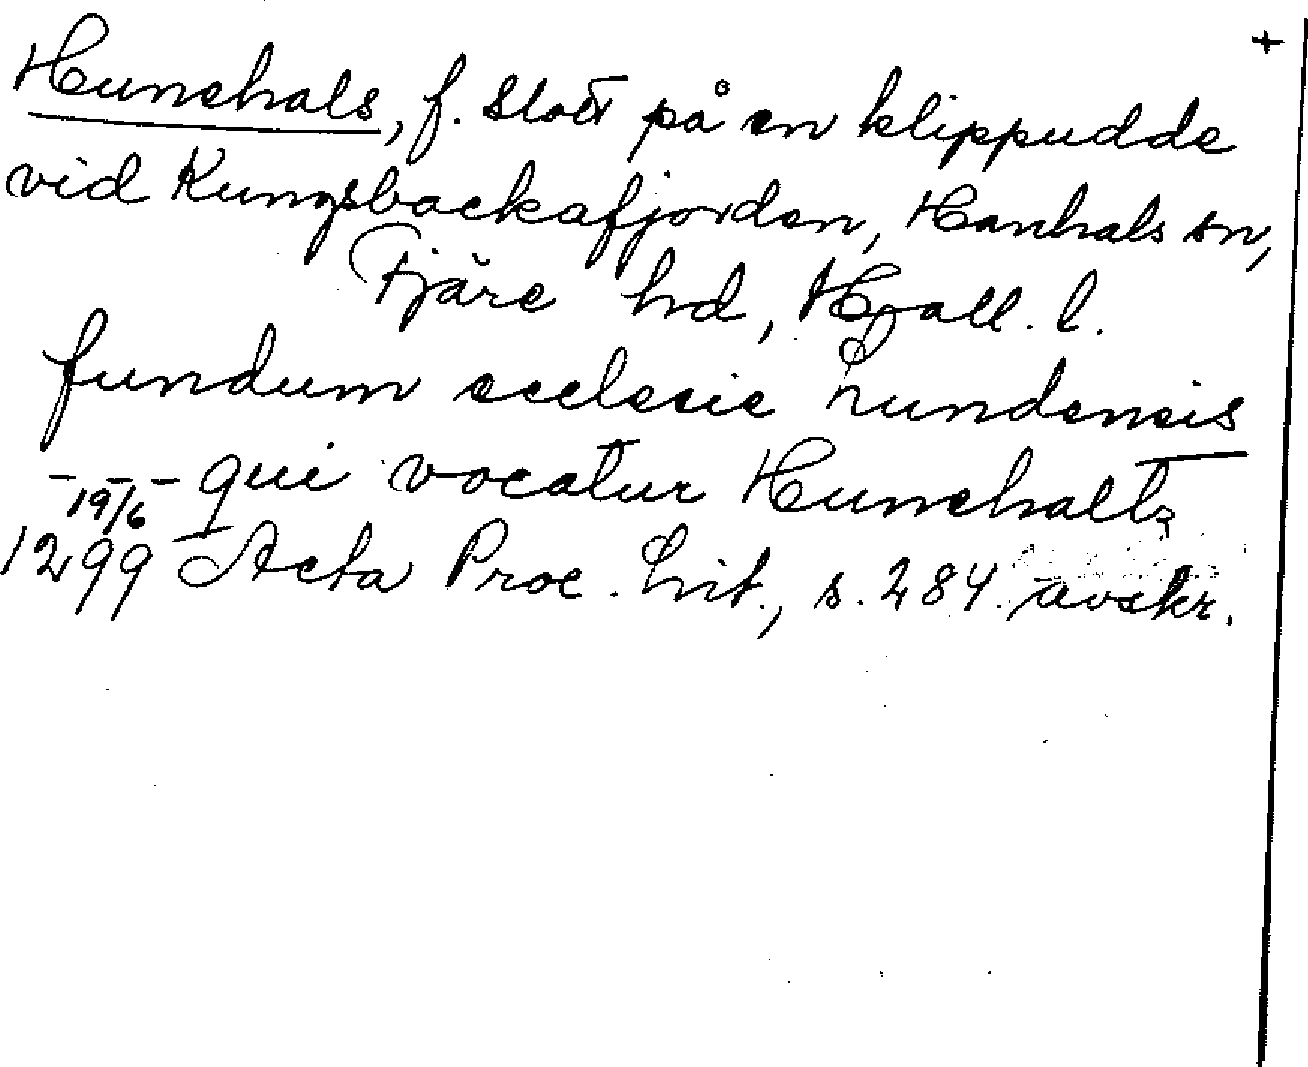 +
Hunehals, f. slott på en klippudde
vid Kungsbackafjorden, Hanhals sn,
Fjäre hd, Hall. l.
fundum ecclesie Lundensis
--- qui vocatur Hunehaltz
19/6
1299 Acta Proc. Lit., s. 284. avskr.